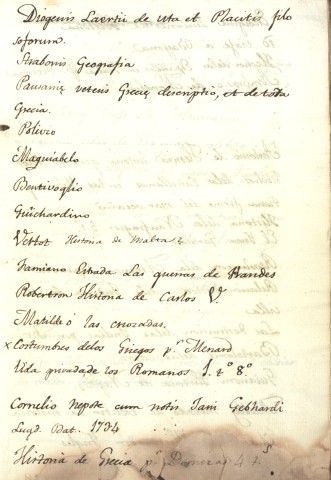 Diogenis Laertii de vita et Placitis philo
soforum.
Strabonis Geografia
Pausanię veteris Grecię descriptio, et de tota
Grecia.
Polivio
Maquiabelo
Bentivoglio
Guichardino
Vertot Historia de Malta
Famiano Estrada Las guerras de Flandes
Robertson Historia de Carlos V
Matilde ó las cruzadas.
x Costumbres delos Griegos pʳ Menard
Vida privada de los Romanos 1. tº 8º
Cornelio Nepote cum notis Jani Gebhardi
Lugd. Bat. 1734
Historia de Grecia pʳ 4 tˢ